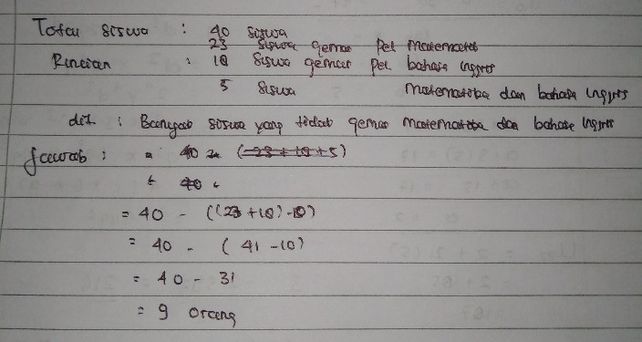 Total siswa : 40 siswa
23 siswa gemar Pel Matematika
Rincian : 18 siswa gemar Pel bahasa Inggris
5 siswa Matematika dan bahasa Inggris
dit : Banyak siswa yang tidak gemar Matematika dan bahasa Inggris
Jawab : = 40 - (-23 + 18 + 5)
= 40 -
= 40 - ((23 + 18) - 10)
= 40 - (41 - 10)
= 40 - 31
= 9 orang